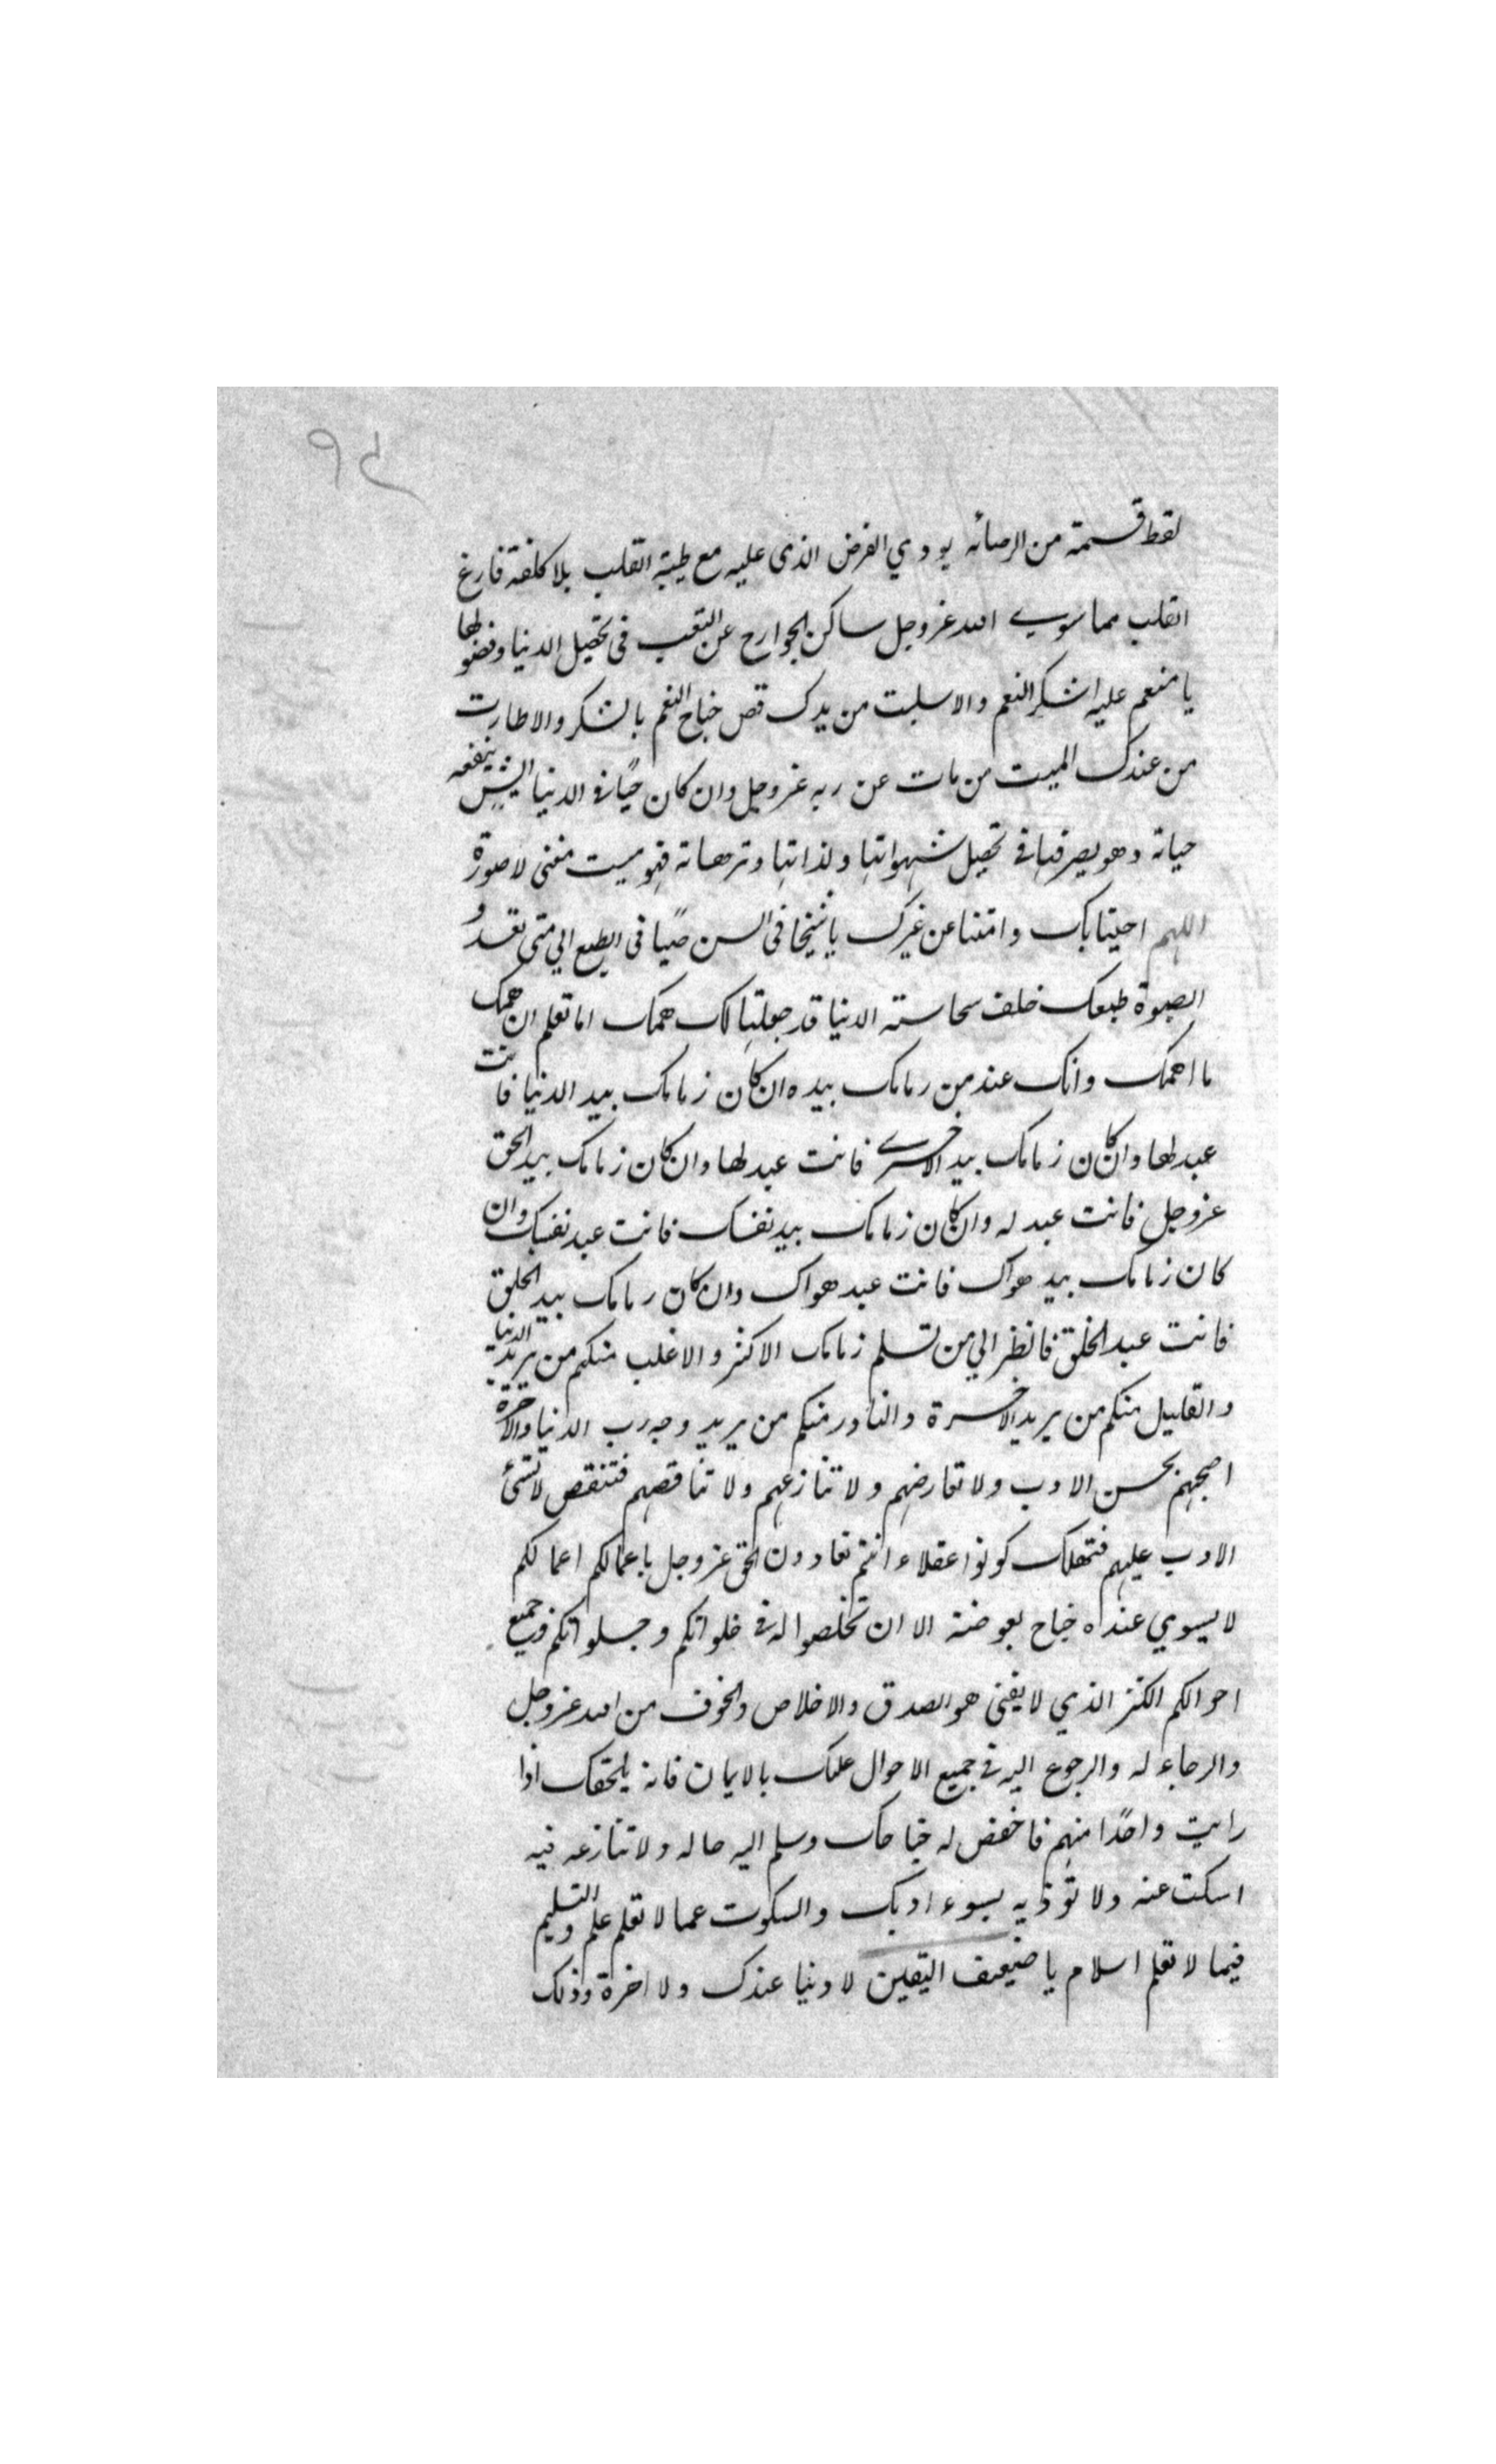 لقط قسمته من الرضائه يودي الفرض الذي عليه مع طيبة القلب بلا كلفة فارغ
القلب مما سوي الله عز وجل ساكن الجوارح عن التعب في تحصيل الدنيا وفضولها
يا منعم عليه اشكر النعم والا سلبت من يدك قص جناح النعم بالشكر والا طارت
من عندك الميت من مات عن ربه عز وجل وان كان حيًا في الدنيا ايش ينفعه
حياته وهو يصرفها في تحصيل شهواتها ولذاتها وترهاته فهو ميت معنى لا صورة
اللهم احينا بك وامتنا عن غيرك يا شيخا في السن صبيا في الطبع الي متى تعدو
الصبوة طبعك خلف سحاسته الدنيا قد جعلتها لك همك اما تعلم ان همك
ما اهمك وانك عند من زمامك بيده ان كان زمامك بيد الدنيا فانت
عبد لها وان كان زمامك بيد الاخري فانت عبد لها وان كان زمامك بيد الحق
عز وجل فانت عبد له وان كان زمامك بيد نفسك فانت عبد نفسك وان
كان زمامك بيد هواك فانت عبد هواك وان كان زمامك بيد الخلق
فانت عبد الخلق فانظر الي من تسلم زمامك الاكثر والاغلب منكم من يريد الدنيا
والقليل منكم من يريد الاخرة والنادر منكم من يريد وجه رب الدنيا والاخرة
اصحبهم بحسن الادب ولا تعارضهم ولا تنازعهم ولا تناقصهم فتنقص لا تسئ
الادب عليهم فتهلك كونوا عقلاء انتم تعادون الحق عز وجل باعمالكم اعمالكم
لا يسوي عنده جناح بعوضة الا ان تخلصوا له في خلواتكم وجلواتكم وجميع
احوالكم الكنز الذي لا يفنى هو الصدق والاخلاص والخوف من الله عز وجل
والرجاء له والرجوع اليه في جميع الاحوال عليك بالايمان فانه يلحقك اذا
رايت واحدًا منهم فاخفض له جناحك وسلم اليه حاله ولا تنازعه فيه
اسكت عنه ولا تؤذيه بسوء ادبك والسكوت عما لا تعلم علم والتسليم
فيما لا تعلم اسلام يا ضعيف اليقين لا دنيا عندك ولا اخرة وذلك